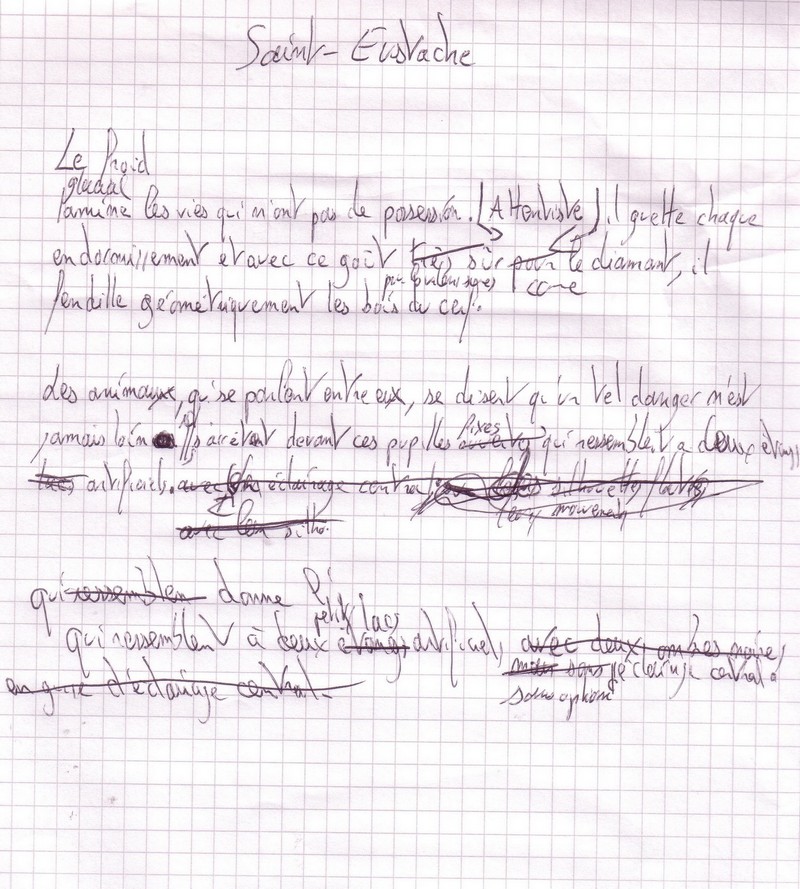 Saint-Eustache
Le froid
glacial
lamine les vies qui n'ont pas de possession. (Attentiste) il guette chaque
endormissement et avec ce goût très sûr pour le diamant, il
come
fendille géométriquement les bois du cerf.
des animaux, qui se parlent entre eux, se disent qu'un tel danger n'est
fixes
jamais loin Ils s'arrêtent devant ces pupilles ouvertes qui ressemblent à deux étangs
lacs artificiels. avec éclairage central silhouettes
avec leur silho.
qui ressemblen donne
petits lacs
qui ressemblent à deux étangs artificiels, avec deux ombres noires
sans éclairage central.
en guise d'éclairage central.